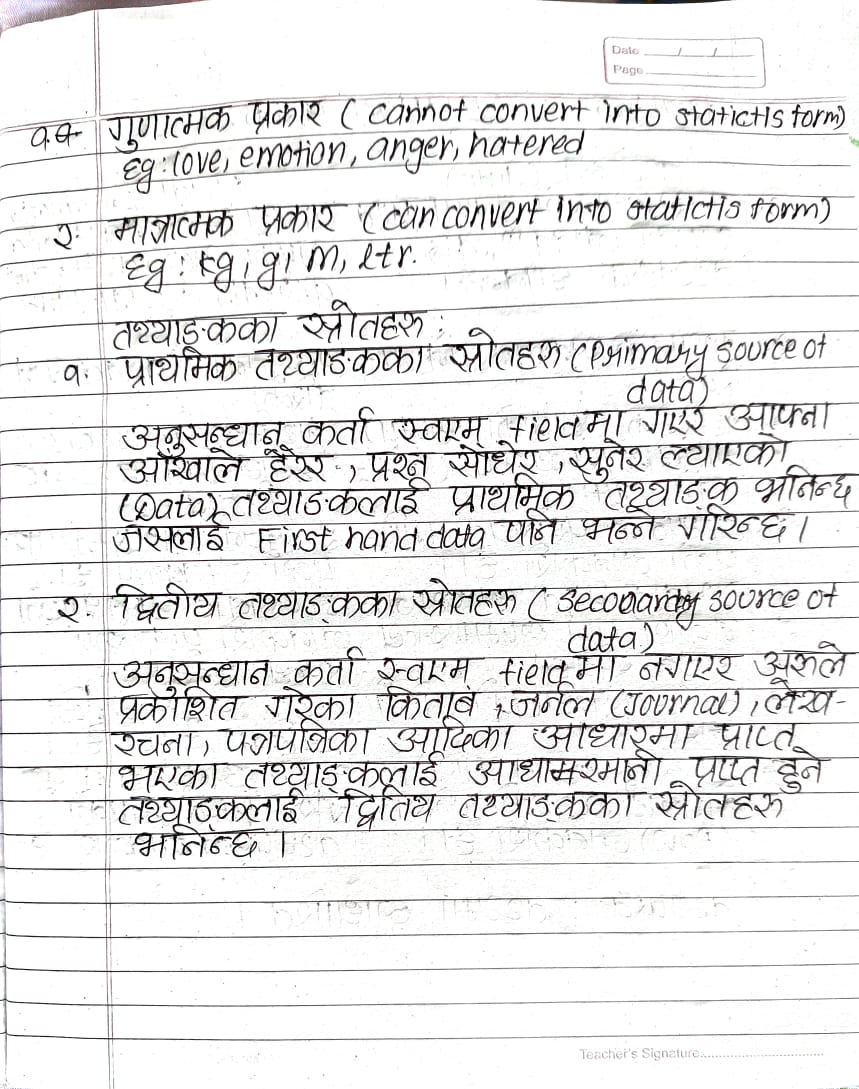 Date / /
Page
१.१. गुणात्मक प्रकार ( cannot convert into statictis form)
Eg: love, emotion, anger, hatered
२. मात्रात्मक प्रकार (can convert into statictis form)
Eg : kg, g, m, ltr.
तथ्याङ्कका स्रोतहरू :
१. प्राथमिक तथ्याङ्कका स्रोतहरू (Primary source of
data)
अनुसन्धान कर्ता स्वएम् field मा गएर आफ्ना
आँखाले हेरेर, प्रश्न सोधेर, सुनेर ल्याएको
(Data) तथ्याङ्कलाई प्राथमिक तथ्याङ्क भनिन्छ
जसलाई First hand data पनि भन्ने गरिन्छ।
२. द्वितीय तथ्याङ्कका स्रोतहरू ( secondary source of
data)
अनुसन्धान कर्ता स्वएम् field मा नगएर अरूले
प्रकाशित गरेका किताब, जर्नल (Journal), लेख-
रचना, पत्रपत्रिका आदिका आधारमा प्राप्त
भएका तथ्याङ्कलाई मानी प्राप्त हुने
तथ्याङ्कलाई द्वितिय तथ्याङ्कका स्रोतहरू
भनिन्छ।
Teacher's Signature